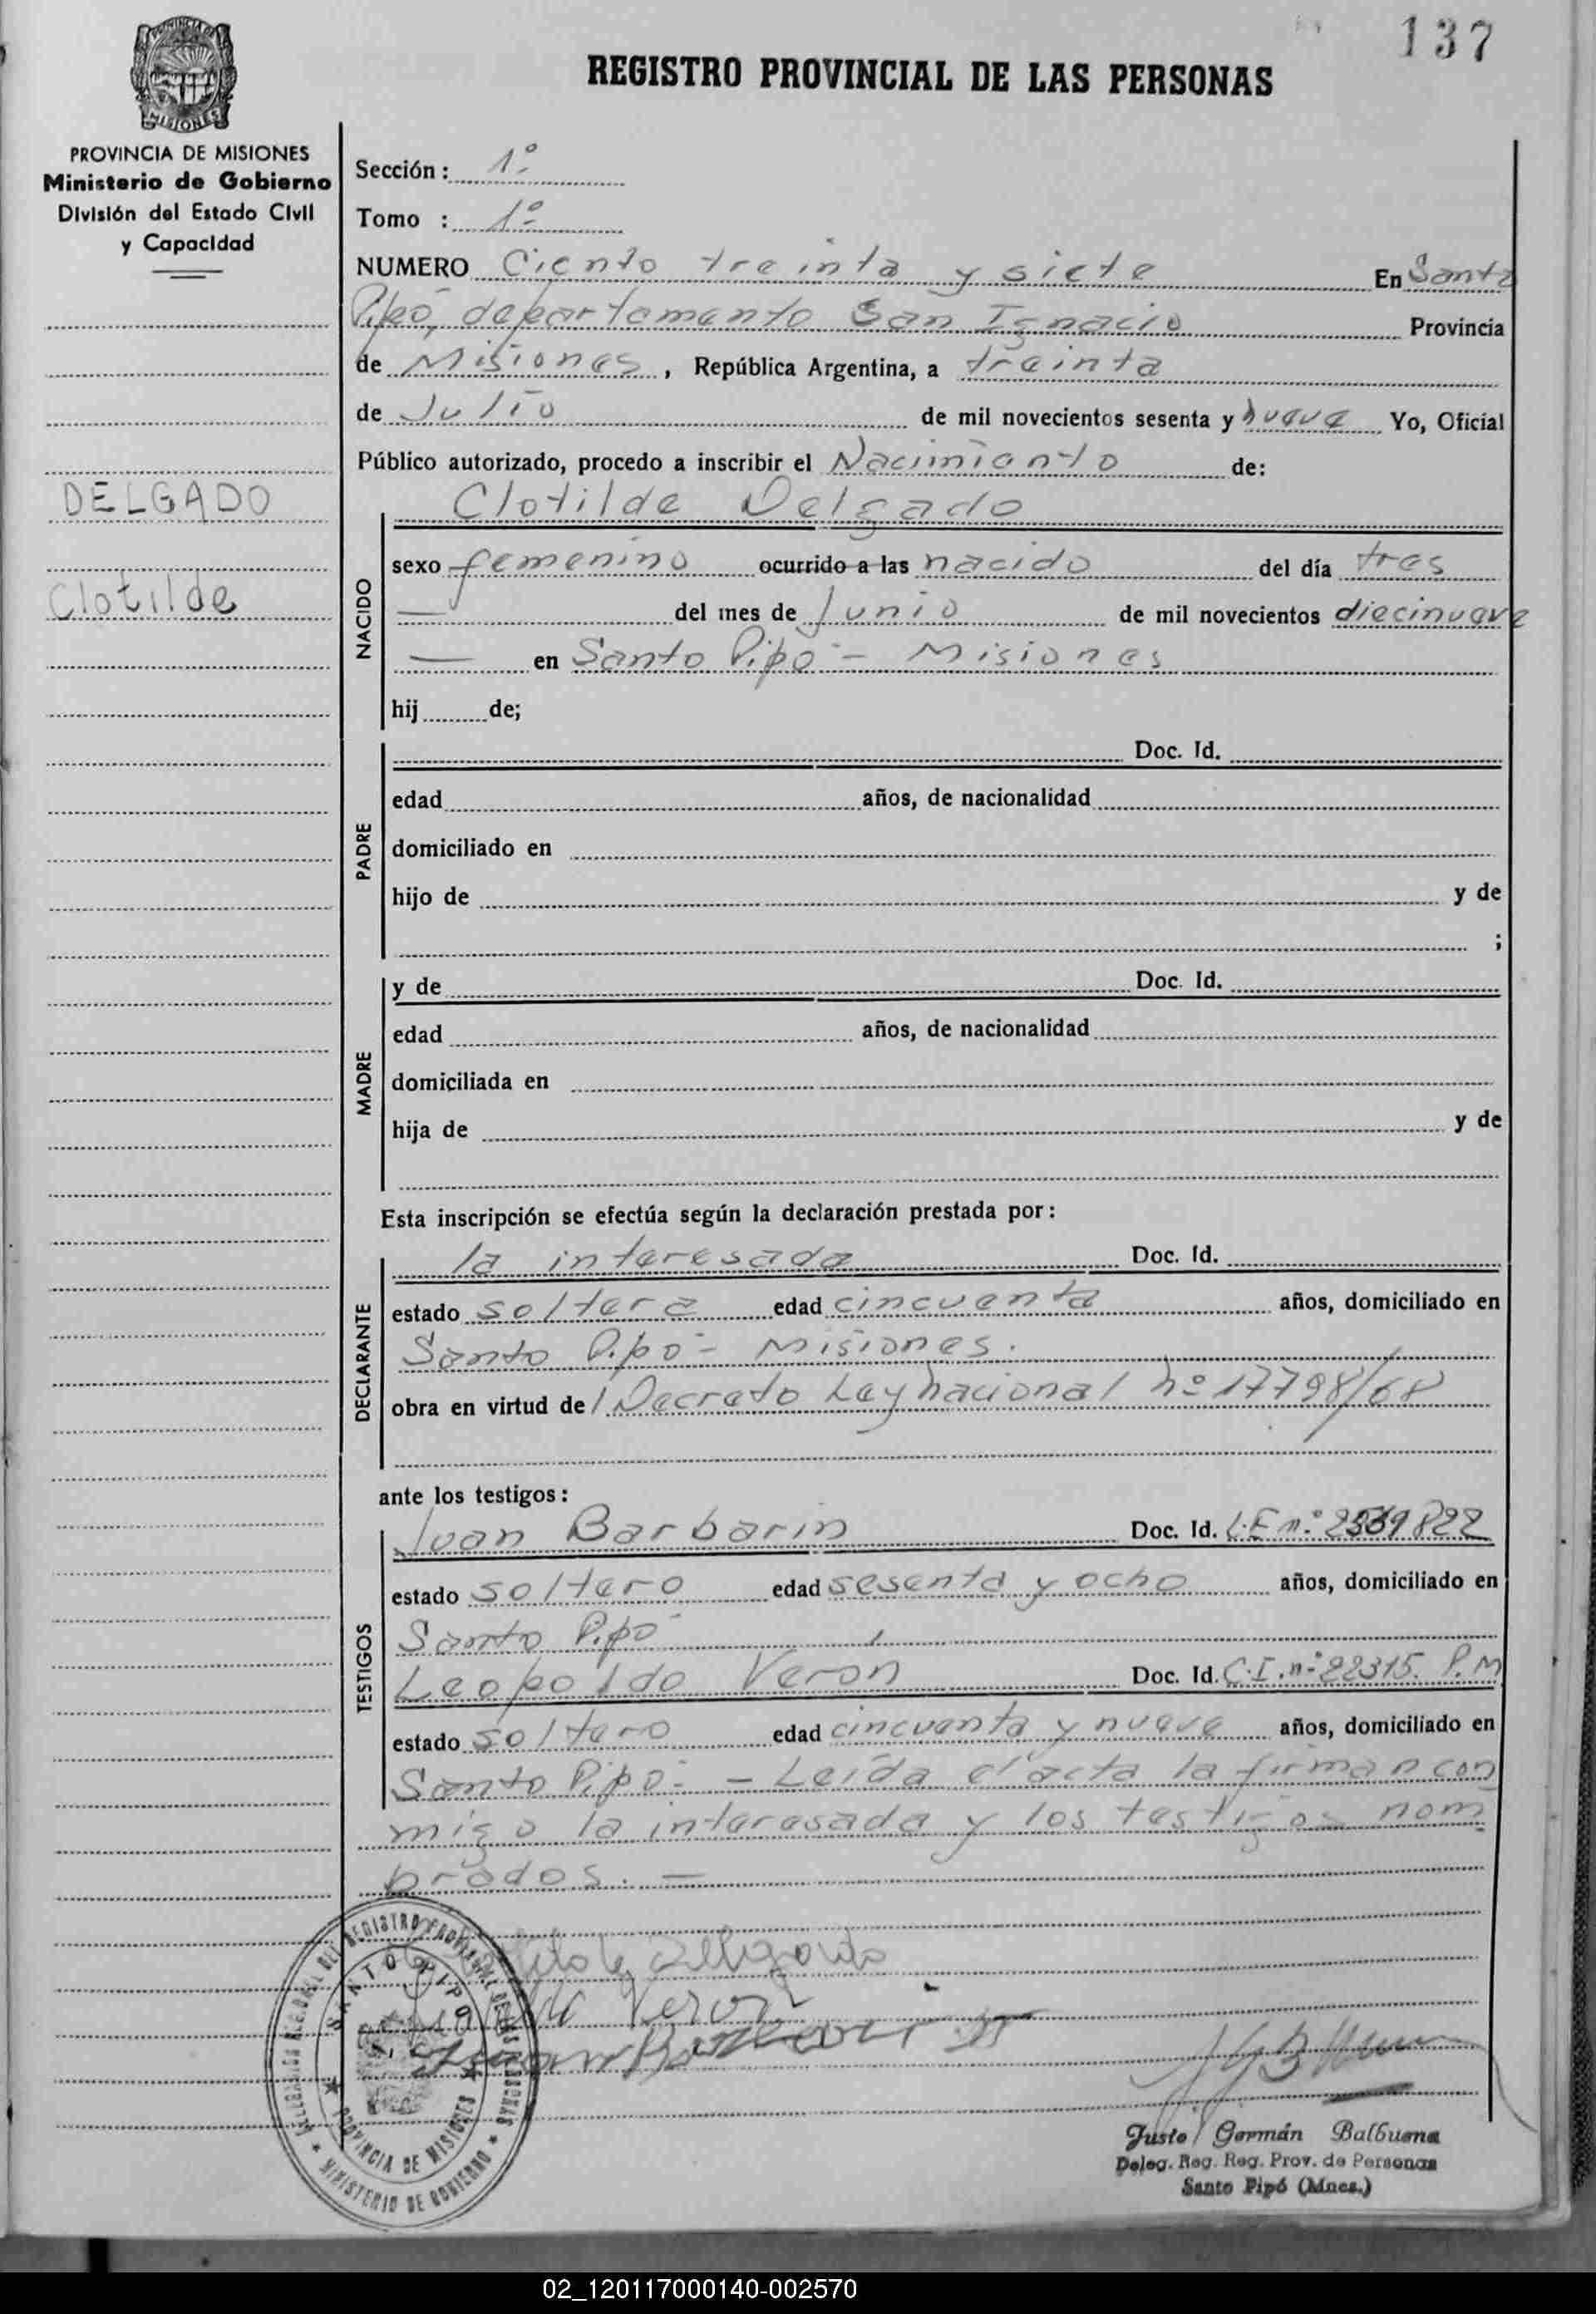 137
REGISTRO PROVINCIAL DE LAS PERSONAS
MISIONES
PROVINCIA DE MISIONES
Ministerio de Gobierno
División del Estado Civil
y Capacidad
DELGADO
Clotilde
Sección: 1º
Tomo : 1º
NUMERO Ciento treinta y siete En Santo
Pipó, departamento San Ignacio Provincia
de Misiones, República Argentina, a treinta
de Julio de mil novecientos sesenta y nueve Yo, Oficial
Público autorizado, procedo a inscribir el Nacimiento de:
NACIDO
Clotilde Delgado
sexo femenino ocurrido a las nacido del día tres
— del mes de Junio de mil novecientos diecinueve
— en Santo Pipó - Misiones
hij de;
PADRE
Doc. Id.
edad años, de nacionalidad
domiciliado en
hijo de y de
;
MADRE
y de Doc. Id.
edad años, de nacionalidad
domiciliada en
hija de y de
Esta inscripción se efectúa según la declaración prestada por:
DECLARANTE
la interesada Doc. Id.
estado soltera edad cincuenta años, domiciliado en
Santo Pipó - Misiones.
obra en virtud de Decreto Ley nacional nº 17798/68
ante los testigos:
TESTIGOS
Juan Barbarin Doc. Id. L.E nº
estado soltero edad sesenta y ocho años, domiciliado en
Santo Pipó
Leopoldo Verón Doc. Id. C.I. nº 22315. P.M
estado soltero edad cincuenta y nueve años, domiciliado en
Santo Pipó - - Leída el acta la firman con
migo la interesada y los testigos nom
brados. —
SANTO PIPO
PROVINCIA DE MISIONES
MINISTERIO DE GOBIERNO
Justo Germán Balbuena
Deleg. Reg. Reg. Prov. de Personas
Santo Pipó (Mnes.)
02_120117000140-002570